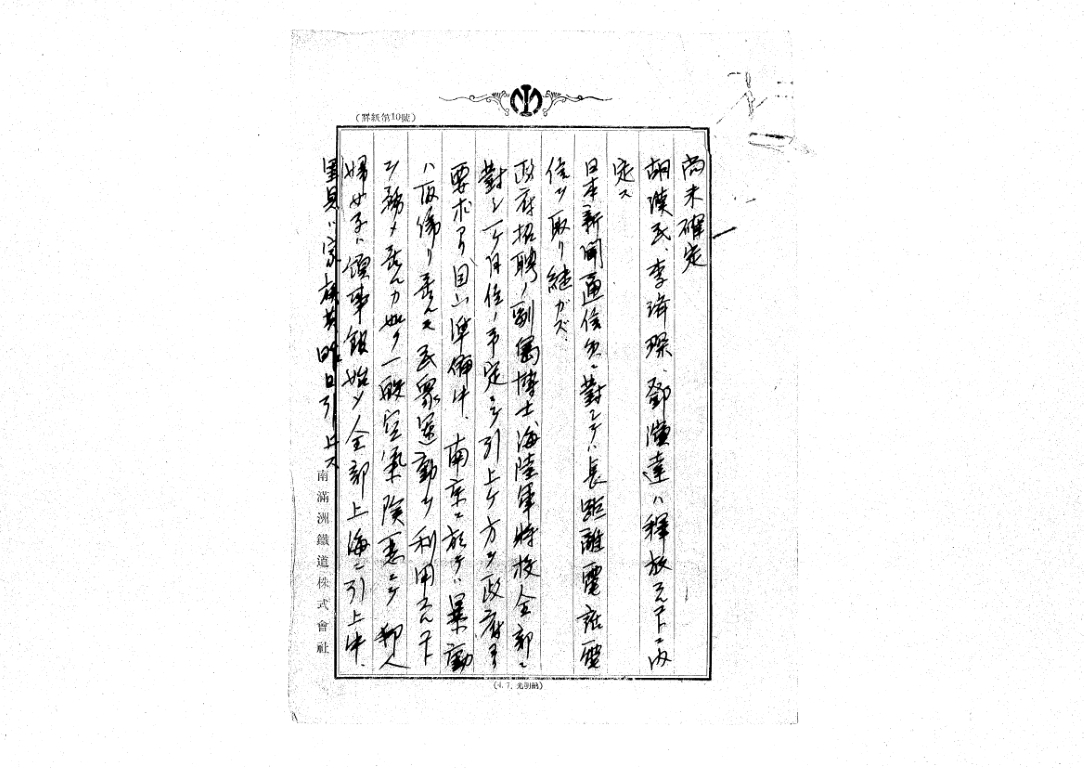 (罫紙第10號)
尚未確定
胡漢民、李済琛、鄧演達ハ釋放スルコトニ内
定ス
日本新聞通信員ニ對シテハ長距離電話電
信ヲ取リ継ガズ
政府招聘ノ副島博士海陸軍将校全部ニ
對シ一ケ月位ノ予定ニテ引上ゲ方ヲ政府ヨリ
要求アリ目下準備中、南京ニ於テハ暴動
ハ極力
民衆運動ヲ利用スルコト
ニ務メ居ルカ如ク一般空気険悪ニテ邦人
婦女子ハ領事館始メ全部上海ニ引上中、
家族昨日引上ス
南滿洲鐵道株式會社
(4.7. 光明納)